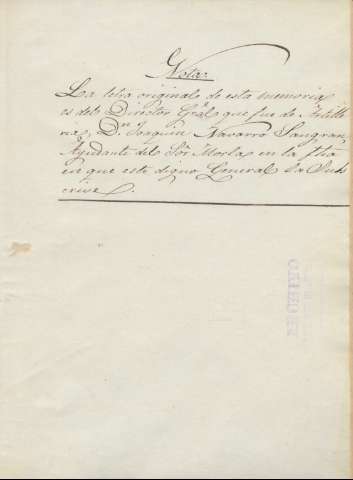 Nota:
La letra original de esta memoria
es del Director Gral que fue de Artille
ria, Dn. Joaquin Navarro Sangran,
Ayudante del Sor Morla en la fha
en que este digno General la Sub
crive.